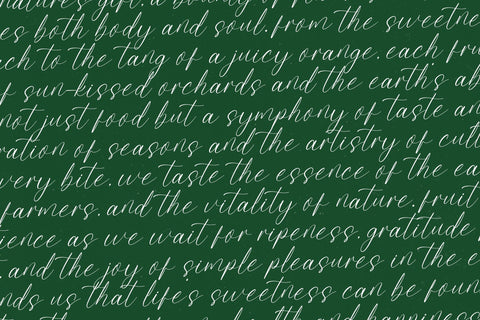 nature's gift. a bounty of
es both body and soul. from the sweetne
ach to the tang of a juicy orange. each fru
of sun-kissed orchards and the earth's ab
not just food but a symphony of taste an
ration of seasons and the artistry of cult
very bite. we taste the essence of the ea
farmers. and the vitality of nature. fruit
ience as we wait for ripeness. gratitude
. and the joy of simple pleasures in the e
nds us that life's sweetness can be foun
health and happiness